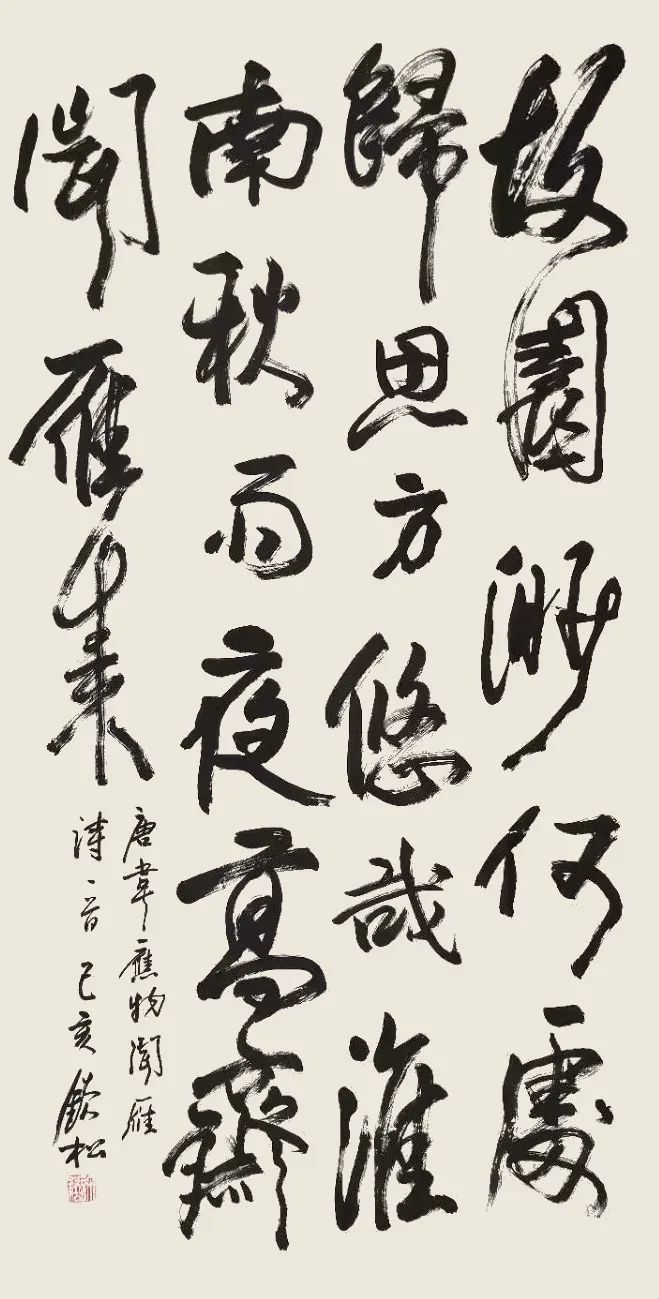 故園渺何處
歸思方悠哉淮
南秋雨夜高齋
聞雁來
唐韋應物聞雁
詩一首己亥 松